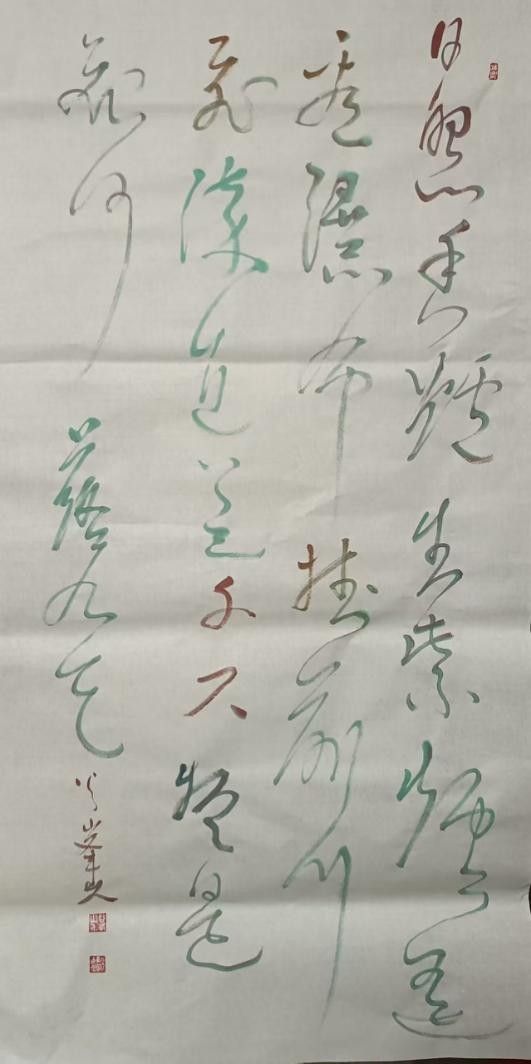 日照香爐生紫烟遥
看瀑布挂前川
飛流直下三千尺疑是
銀河落九天